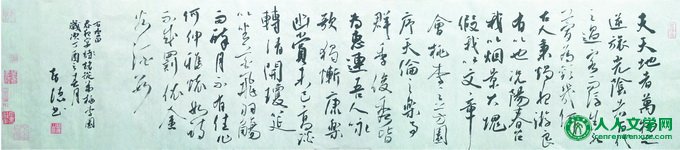 夫天地者萬物之
逆旅光陰者百代
之過客而浮生若
夢為歡幾何
古人秉燭夜遊良
有以也況陽春召
我以煙景大塊
假我以文章
會桃李之芳園
序天倫之樂事
群季俊秀皆
為惠連吾人詠
歌獨慚康樂
幽賞未已高談
轉清開瓊筵
以坐花飛羽觴
而醉月不有佳作
何伸雅懷如詩
不成罰依金
谷酒數
春夜宴諸從弟桃李園
歲次丁酉之春月
人人文学网